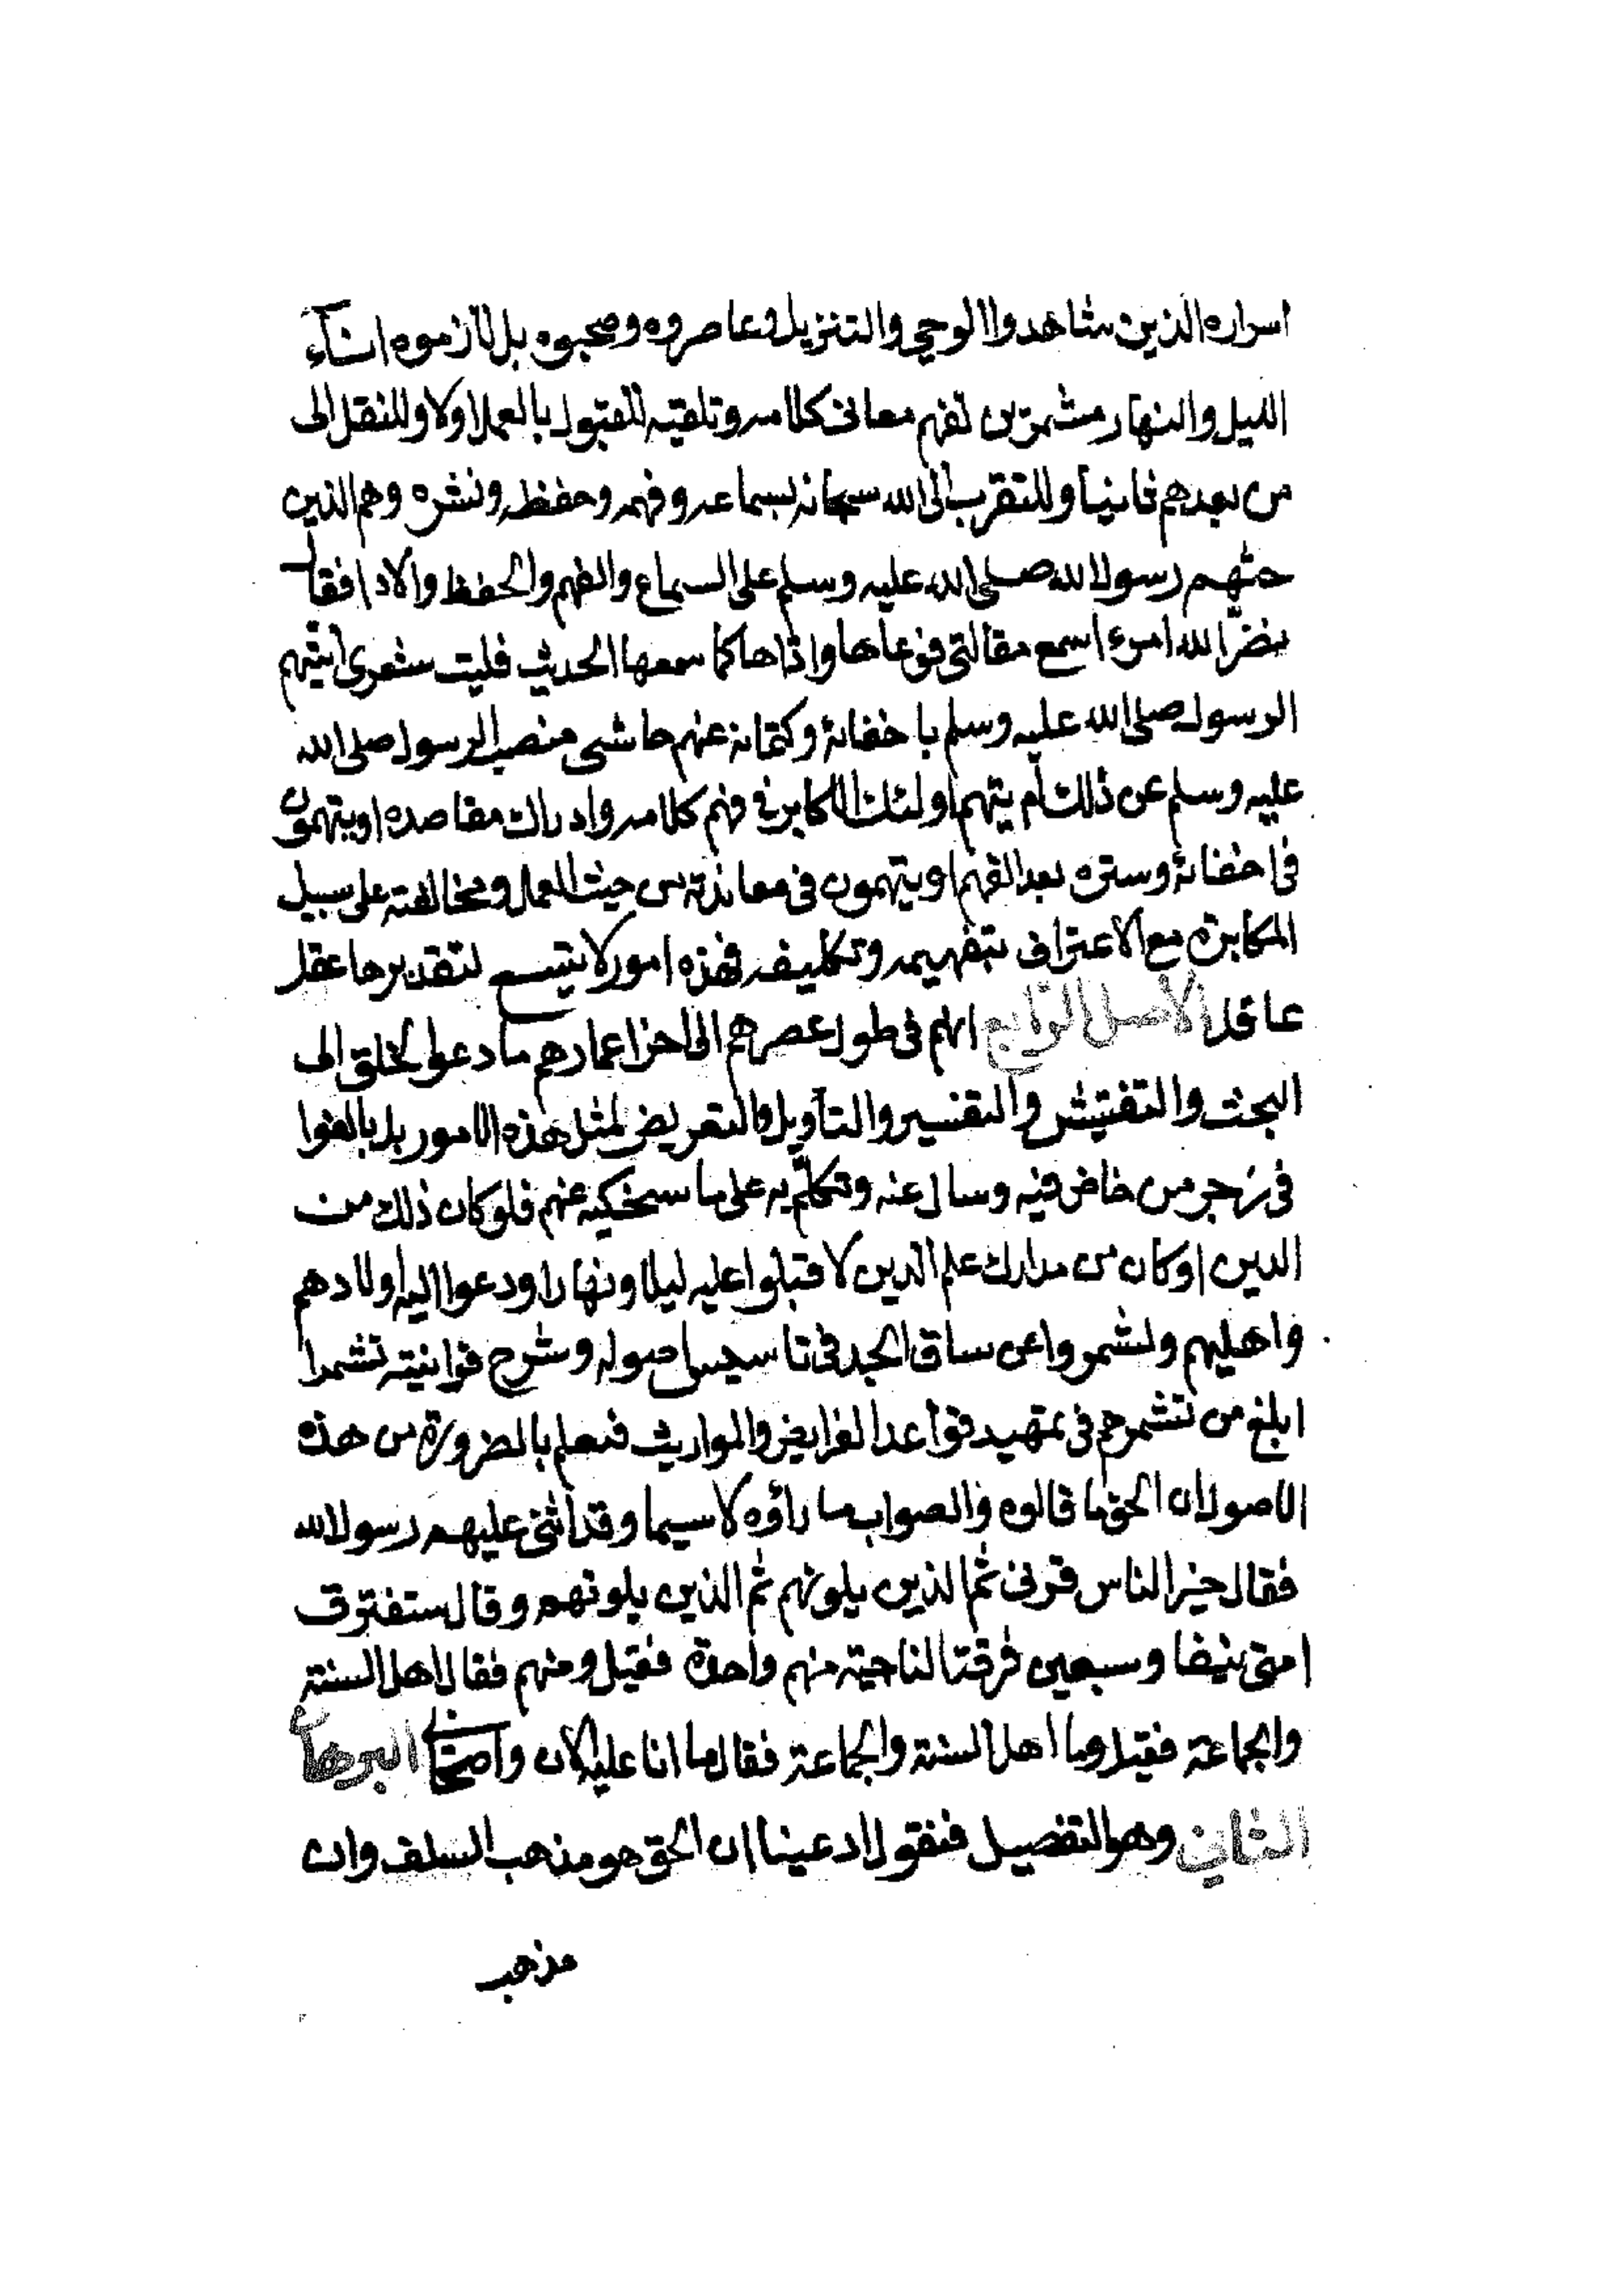 اسراره الذين شاهدوا الوحي والتنزيل وعاصروه وصحبوه بل لازموه اناء
الليل والنهار متشمرين لفهم معاني كلامه وتلقيه للقبول بالعمل اولا وللنقل الى
من بعدهم ثانيا وللتقرب الى الله سبحانه بسماعه وفهمه وحفظه ونشره وهم الذين
حثهم رسول الله صلى الله عليه وسلم على السماع والفهم والحفظ والادا فقال
نضر الله امرءا سمع مقالتي فوعاها واداها كما سمعها الحديث فليت شعرى ايتهم
الرسول صلى الله عليه وسلم باخفائه وكتمانه عنهم حاشى منصب الرسول صلى الله
عليه وسلم عن ذلك ام يتهم اولئك الاكابر في فهم كلامه وادراك مقاصده او يتهمون
فى اخفائه وستره بعد الفهم او يتهمون فى معاندته من حيث العمل ومخالفته على سبيل
المكابرة مع الاعتراف بتفهيمه وتكليفه فهذه امور لا يتسع لتقديرها عقل
عاقل الاصل الرابع انهم فى طول عصرهم الى اخر اعمارهم ما دعوا الخلق الى
البحث والتفتيش والتفسير والتأويل والتعريض لمثل هذه الامور بل بالغوا
فى زجر من خاض فيه وسال عنه وتكلم به على ما سنحكيه عنهم فلو كان ذلك من
الدين او كان من مدارك علم الدين لاقبلوا عليه ليلا ونهارا ودعوا اليه اولادهم
واهليهم ولشمروا عن ساق الجد فى تاسيس اصوله وشرح قوانينه تشمرا
ابلغ من تشمرهم فى تمهيد قواعد الفرايض والمواريث فنعلم بالضرورة من هذه
الاصول ان الحق ما قالوه والصواب ما رأوه لا سيما وقد اثنى عليهم رسول الله
فقال خير الناس قرني ثم الذين يلونهم ثم الذين يلونهم وقال ستفترق
امتى نيفا وسبعين فرقة الناجية منهم واحدة فقيل ومنهم فقال اهل السنة
والجماعة فقيل وما اهل السنة والجماعة فقال ما انا عليه الان واصحابي البرهان
الثاني وهو التفصيل فنقول ادعينا ان الحق هو مذهب السلف وان
مذهب